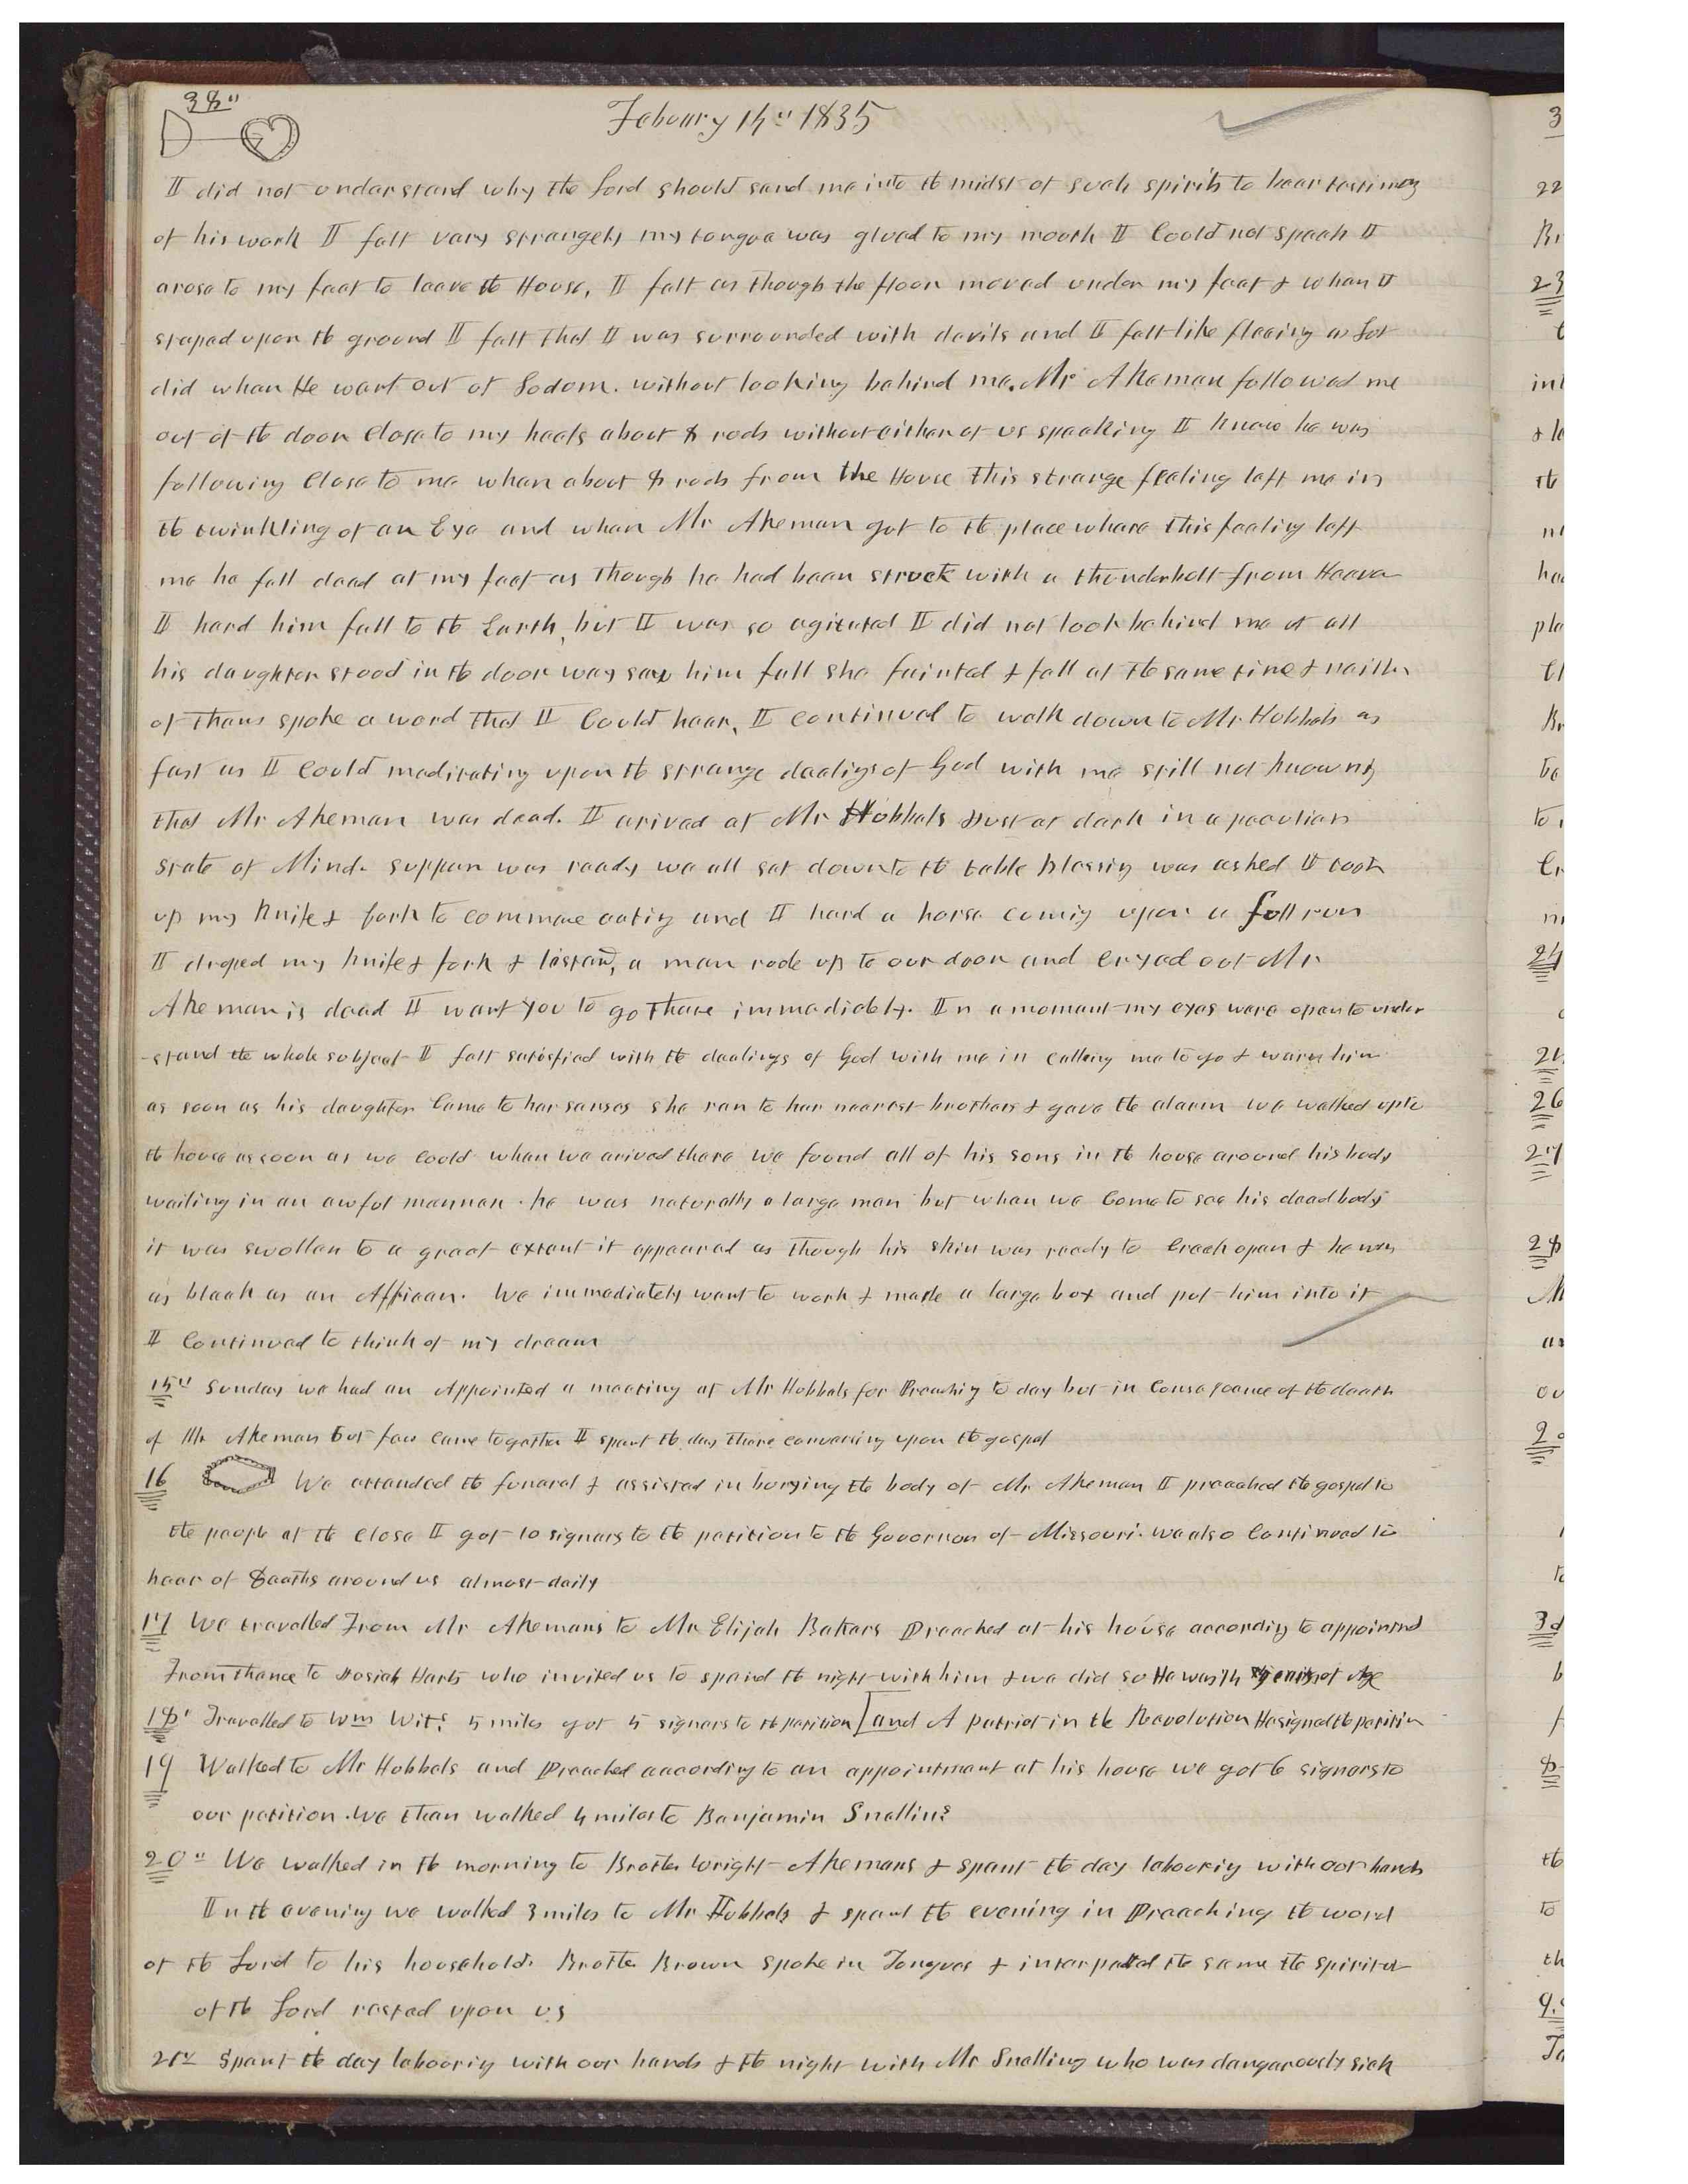 38"
Febuary 14" 1835
I did not understand why the Lord should send me into the midst of such spirits to bear testimony
of his work I felt very strangely my tongue was glued to my mouth I Could not speak I
arose to my feet to leave the House, I felt as though the floor moved under my feet & when I
steped upon the ground I felt that I was surrounded with devils and I felt like fleeing as Lot
did when He went out of Sodom. without looking behind me. Mr Akeman followed me
out of the door Close to my heels about 8 rods without either of us speaking I knew he was
following Close to me when about 8 rods from the House this strange feeling left me in
the twinkling of an Eye and when Mr Akeman got to the place where this feeling left
me he fell dead at my feet as though he had been struck with a thunderbolt from Heaven
I herd him fall to the Earth, but I was so agitated I did not look behind me at all
his daughter stood in the door way saw him fall she fainted & fell at the same time & neither
of them spoke a word that I Could hear, I continued to walk down to Mr Hubbels as
fast as I Could meditating upon the strange dealigs of God with me still not knowing
that Mr Akeman was dead. I arived at Mr Hubbels Just at dark in a peculiar
state of Mind. supper was ready we all sat down to the table blessing was asked I took
up my knife & fork to commence eating and I herd a horse coming upon a full run
I droped my knife & fork & listend, a man rode up to our door and cryed out Mr
Akeman is dead I want you to go there immediately. In a moment my eyes were open to under
-stand the whole subject I felt satisfied with the dealings of God with me in calling me to go & warn him
as soon as his daughter Came to her senses she ran to her nearest brothers & gave the alarm we walked up to
the house as soon as we Could when we arived there we found all of his sons in the house around his body
wailing in an awful manner. he was naturally a large man but when we Come to see his dead body
it was swollen to a great extent it appeared as though his skin was ready to Crack open & he was
as black as an Affrican. We immediately went to work & made a large box and put him into it
I Continued to think of my dream
15" Sunday we had an Appointed a meeting at Mr Hubbels for Preaching to day but in Consequence of the death
of Mr Akeman but few Came together I spent the day there conversing upon the gospel
16 We attended the funeral & assisted in burying the body of Mr Akeman I preached the gospel to
the people at the Close I got 10 signers to the petition to the Governor of Missouri. we also Continued to
hear of Deaths around us almost daily
17 We travelled From Mr Akemans to Mr Elijah Bakers Preached at his house according to appointmd
From thence to Josiah Harts who invited us to spend the night with him & we did so He was 74 years of Age
18" Travelled to Wm Wits 5 miles got 5 signers to the petition [and A Patriot in the Revolution He signed the petition
19 Walked to Mr Hubbels and Preached according to an appointment at his house we got 6 signers to
our petition. We then walked 4 miles to Benjamin Snellins
20" We walked in the morning to Brother Wright Akemans & spent the day labouring with our hands
In the evening we walked 3 miles to Mr Hubbels & spent the evening in Preaching the word
of the Lord to his household. Brother Brown spoke in Tongues & interpatted the same the spirit
of the Lord rested upon us
21st Spent the day labouring with our hands & the night with Mr Snelling who was dangerously sick